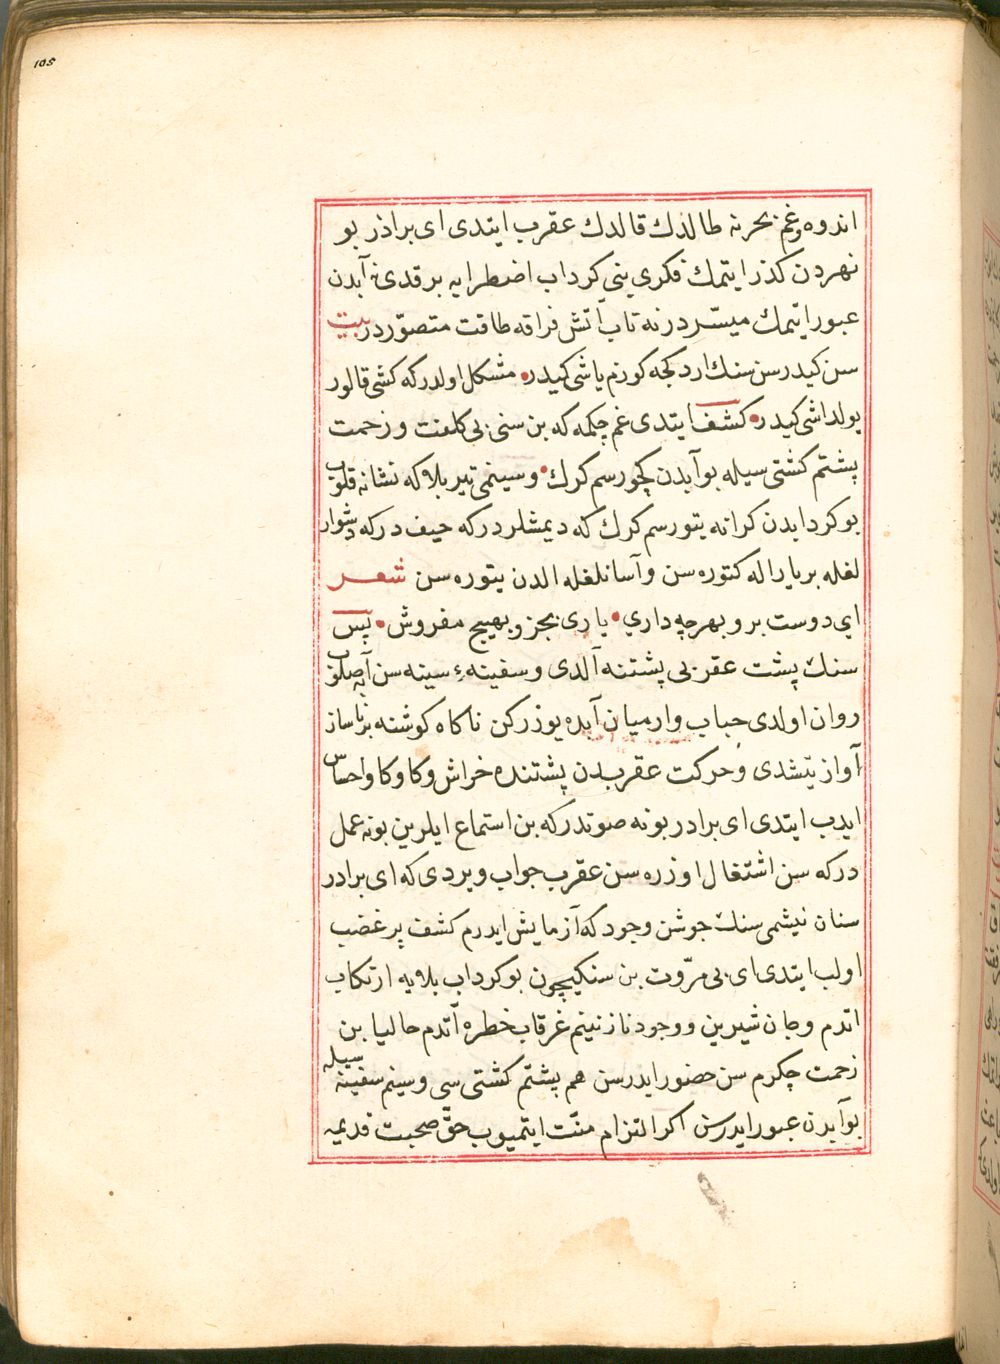 105
اندوه وغم بحرنه طالدك قالدك عقرب ايتدى اى برادر بو
نهردن كذر ايتمك فكرى بنى كرداب اضطرابه برقدى نه آبدن
عبور ايتمك ميسّردر نه تاب آتش فراقه طاقت متصوّردر بيت
سن كيدرسن سنك اردكجه كوزم ياشى كيدر • مشكل اولدر كه كشى قالور
يولداشى كيدر • كشف ايتدى غم چكمه كه بن سنى بى كلفت وزحمت
پشتم كشتى سيله بو آبدن كچورسم كرك • وسينمى تير بلاكه نشانه قلوب
بو كردابدن كرانه يتورسم كرك كه ديمشلردركه حيف دركه دشوار
لغله بر يار اله كتوره سن وآسانلغله الدن يتوره سن شعر
اى دوست برو بهرچه دارى • يارى بخر وبهيچ مفروش • پس
سنك پشت عقربى پشتنه آلدى وسفينهٔ سينه سن آبه صلوب
روان اولدى حباب وار ميان آبده يوزركن ناكاه كوشنه بر ناساز
آواز يتشدى وحركت عقربدن پشتنده خراش وكاوكاو احساس
ايدب ايتدى اى برادر بونه صوتدركه بن استماع ايلرين بونه عمل
دركه سن اشتغال اوزره سن عقرب جواب ويردى كه اى برادر
سنان نيشمى سنك جوشن وجودكه آزمايش ايدرم كشف پر غضب
اولب ايتدى اى بى مرّوت بن سنكيچون بو كرداب بلايه ارتكاب
اتدم وجان شيرين ووجود نازنينم غرقاب خطره آتدم حاليا بن
زحمت چكرم سن حضور ايدرسن هم پشتم كشتى سى وسينم سفينه سيله
بو آبدن عبور ايدرسن اكر التزام منّت ايتميوب حقّ صحبت قديمه